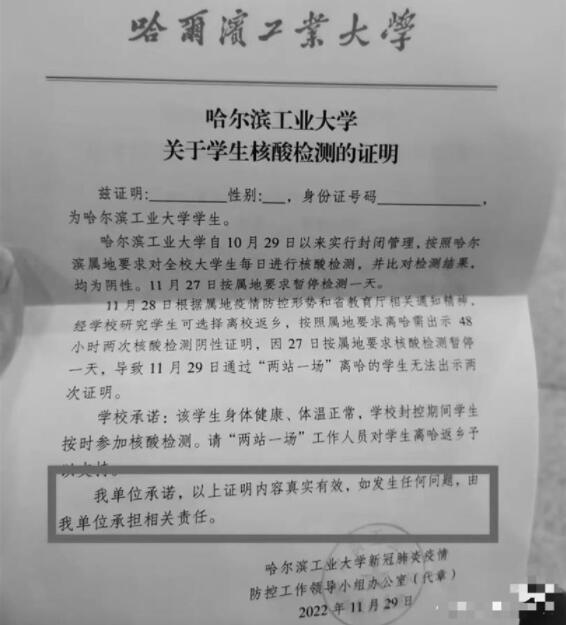 哈爾濱工業大學
哈尔滨工业大学
关于学生核酸检测的证明
兹证明:________性别:__,身份证号码________,
为哈尔滨工业大学学生。
哈尔滨工业大学自10月29日以来实行封闭管理,按照哈尔
滨属地要求对全校大学生每日进行核酸检测,并比对检测结果,
均为阴性。11月27日按属地要求暂停检测一天。
11月28日根据属地疫情防控形势和省教育厅相关通知精神,
经学校研究学生可选择离校返乡,按照属地要求离哈需出示48
小时两次核酸检测阴性证明,因27日按属地要求核酸检测暂停
一天,导致11月29日通过“两站一场”离哈的学生无法出示两
次证明。
学校承诺:该学生身体健康、体温正常,学校封控期间学生
按时参加核酸检测。请“两站一场”工作人员对学生离哈返乡予
以支持。
我单位承诺,以上证明内容真实有效,如发生任何问题,由
我单位承担相关责任。
哈尔滨工业大学新冠肺炎疫情
防控工作领导小组办公室(代章)
2022年11月29日